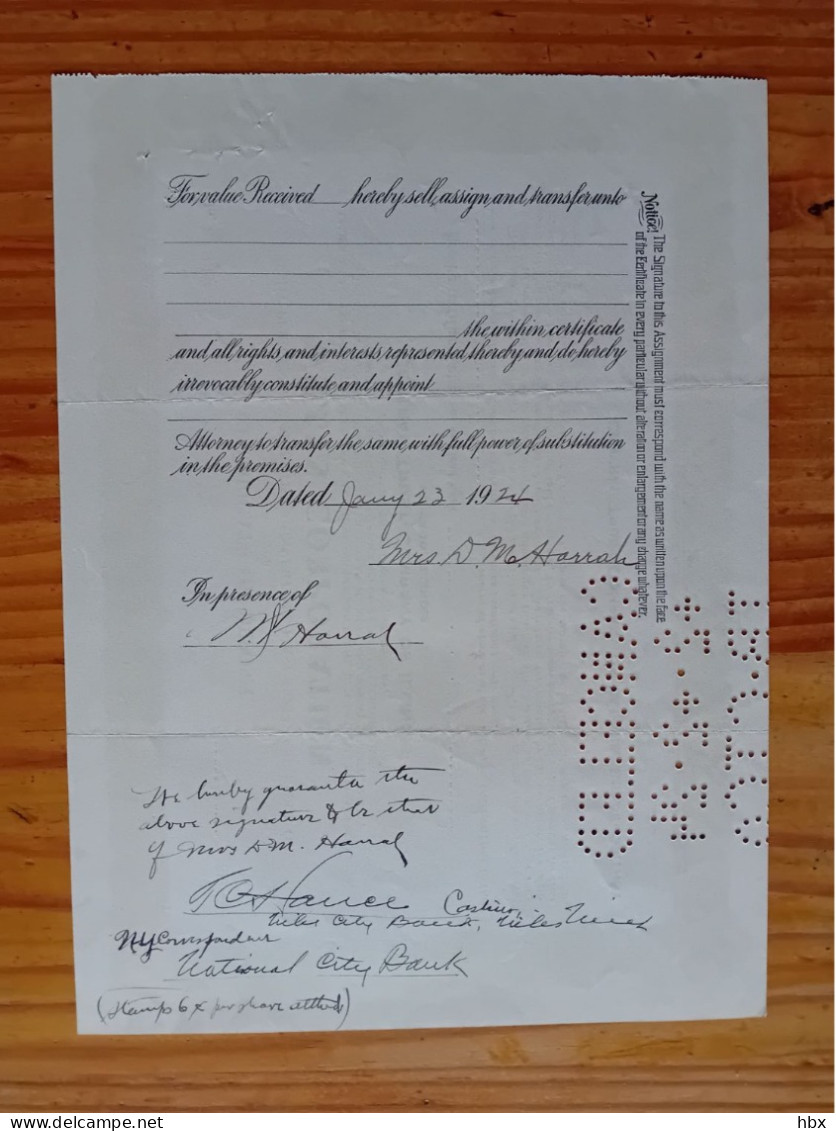 For value Received hereby sell, assign, and transfer unto
the within certificate
and all rights and interests represented thereby and do hereby
irrevocably constitute and appoint
Attorney to transfer the same with full power of substitution
in the premises.
Dated Jany 23 1924
Mrs. D. M. Harrah
In presence of
Harrah
We hereby guarantee the
above signature to be that
of Mrs D M. Harrah
Cashier,
Miles City Bank, Miles
NY Correspondent
National City Bank
(Stamps per share attached)
Notice! The Signature to this Assignment must correspond with the name as written upon the face
of the Certificate in every particular without alteration or enlargement or any change whatever.
CANCELLED
hbx